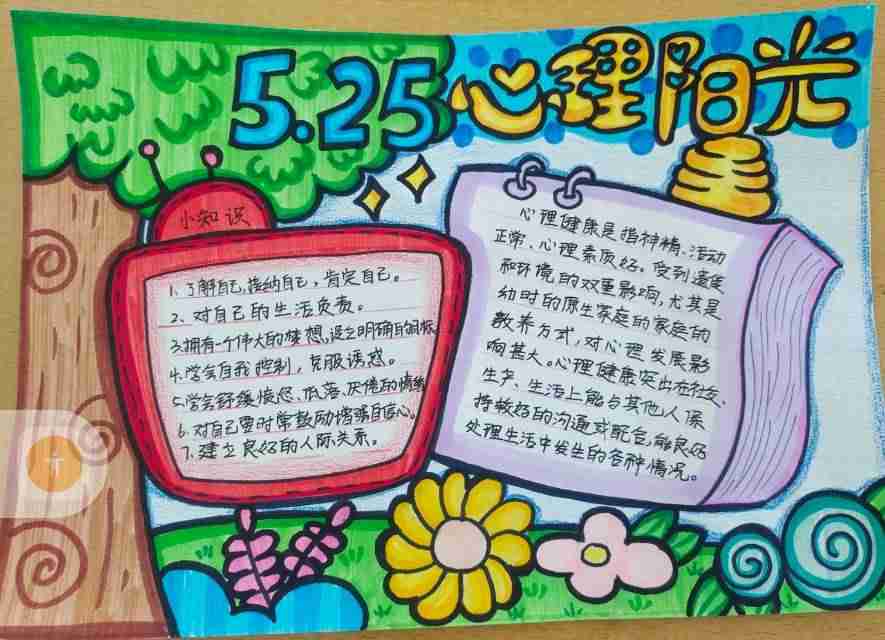 5.25心理阳光
小知识
1、了解自己,接纳自己,肯定自己。
2、对自己的生活负责。
3.拥有一个伟大的梦想,设立明确的目标
4.学会自我控制,克服诱惑。
5.学会舒缓愤怒、低落、厌倦的情绪
6.对自己要时常鼓励增强自信心。
7.建立良好的人际关系。
心理健康是指精神、活动
正常、心理素质好。受到遗传
和环境的双重影响,尤其是
幼时的原生家庭的家庭的
教养方式,对心理发展影
响甚大。心理健康突出在社交、
生产、生活上能与其他人保
持较好的沟通或配合,能良好
处理生活中发生的各种情况。